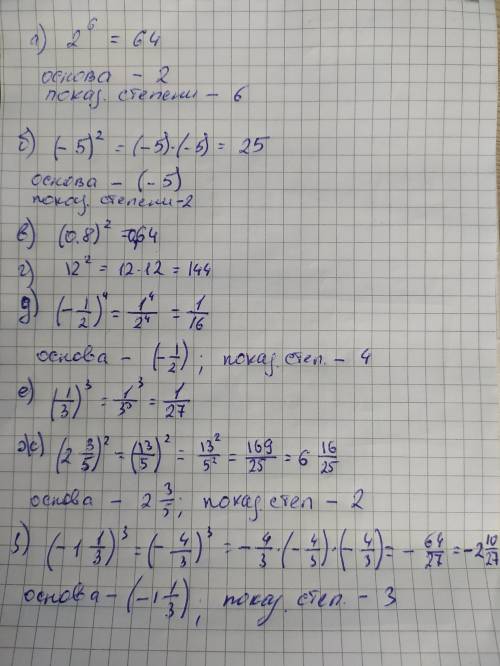 а) 2⁶ = 64
основа - 2
показ. степени - 6
б) (-5)² = (-5)·(-5) = 25
основа - (-5)
показ. степени-2
в) (0.8)² = 0,64
г) 12² = 12·12 = 144
д) (-1/2)⁴ = 1⁴/2⁴ = 1/16
основа - (-1/2); показ. степ. - 4
е) (1/3)³ = 1³/3³ = 1/27
ж) (2 3/5)² = (13/5)² = 13²/5² = 169/25 = 6 16/25
основа - 2 3/5; показ. степ - 2
з) (-1 1/3)³ = (-4/3)³ = -4/3·(-4/3)·(-4/3) = -64/27 = -2 10/27
основа - (-1 1/3); показ. степ. - 3